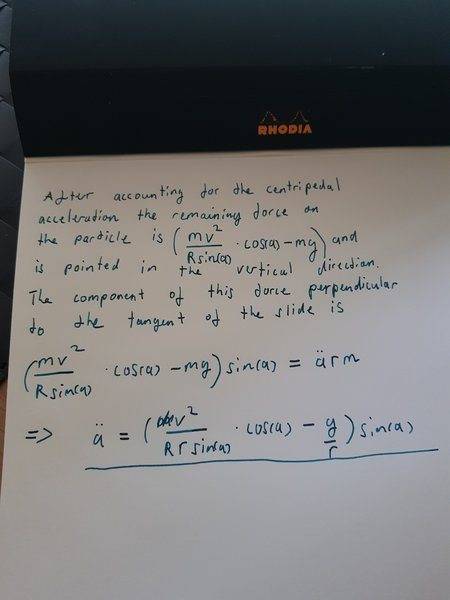 RHODIA
After accounting for the centripedal
acceleration the remaining force on
the particle is (mv²/Rsin(a) · cos(a) - mg) and
is pointed in the vertical direction.
The component of this force perpendicular
to the tangent of the slide is
(mv²/Rsin(a) · cos(a) - mg) sin(a) = ä r m
=> ä = (v²/Rr sin(a) · cos(a) - g/r) sin(a)